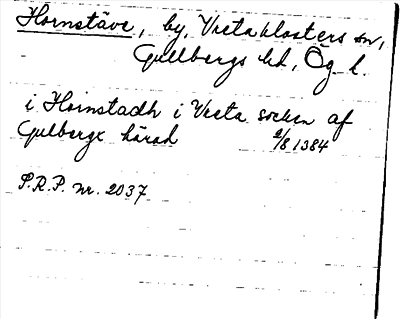 Hornstäve, by, Vreta klosters sn,
Gullbergs hd, Ög. l.
i Hornstadh i Vreta socken af
Gulbergx härad 2/8 1384
S.R.P. nr. 2037